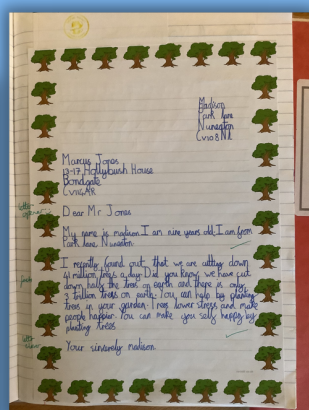 Madison
Park lane
Nuneaton
CV10 8NA
Marcus Jones
13-17 Hollybush House
Bondgate
CV11 6AR
Dear Mr Jones
My name is madison I am nine years old I am from
Park lane, Nuneaton
I recently found out that we are cutting down
41 million trees a day. Did you know, we have cut
down half the trees on earth and there is only
3 trillion trees on earth. You can help by planting
trees in your garden. Trees lower stress and make
people happier. You can make you sally happy by
planting trees
Your sincerely madison.